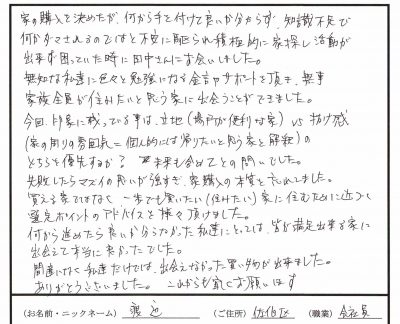 家の購入を決めたが、何から手を付けて良いか分からず、知識不足で
何かダマされるのではと不安に駆られ積極的に家探し活動が
出来ず困っていた時に田中さんにお会いしました。
無知な私達に色々と勉強になる金言やサポートを頂き、無事
家族全員が住みたいと思う家に出会うことができました。
今回、印象に残っている事は、立地(場所が便利な家) vs 抜け感
(家の周りの雰囲気=個人的には帰りたいと思う家と解釈)の
どちらを優先するか? 未来も含めてとの問いでした。
失敗したらマズイの思いが強すぎ、家購入の本質を忘れました。
買える家ではなく、一本でも買いたい(住みたい)家に住むために近づく
選定ポイントのアドバイスを様々頂けました。
何から進めたら良いか分らなかった私達にとっては、皆が満足出来る家に
出会えて本当に良かったでした。
間違いなく私達だけでは、出会えなかった買い物が出来ました。
ありがとうございました。これからも宜しくお願いします
(お名前・ニックネーム) 渡辺 (ご住所) 佐伯区 (職業) 会社員